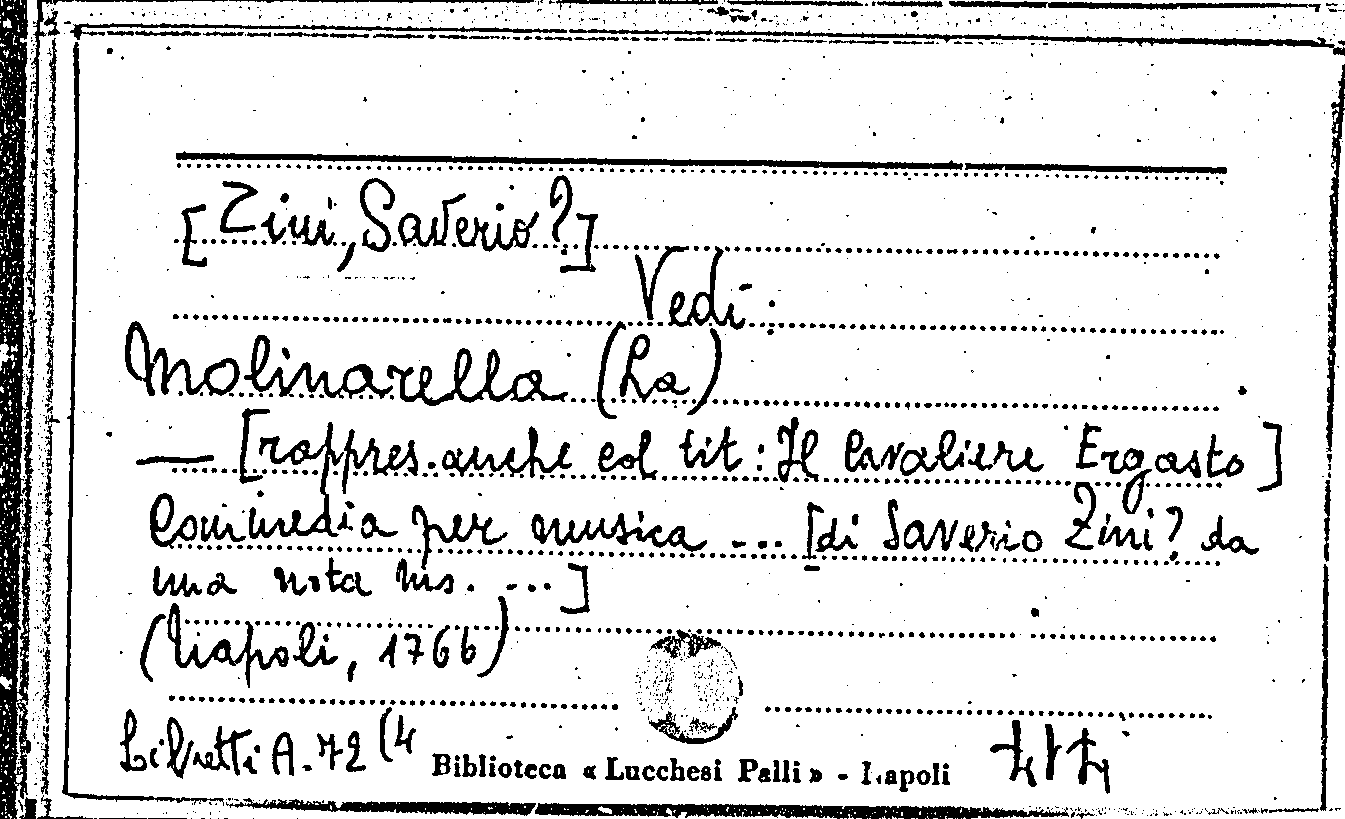 [Zini, Saverio?]
Vedi:
Molinarella (La)
— [rappres. anche col tit: Il Cavaliere Ergasto]
Commedia per musica ... [di Saverio Zini? da
una nota ms. ...]
(Napoli, 1766)
Libretti A. 72 (4
Biblioteca « Lucchesi Palli » - Napoli